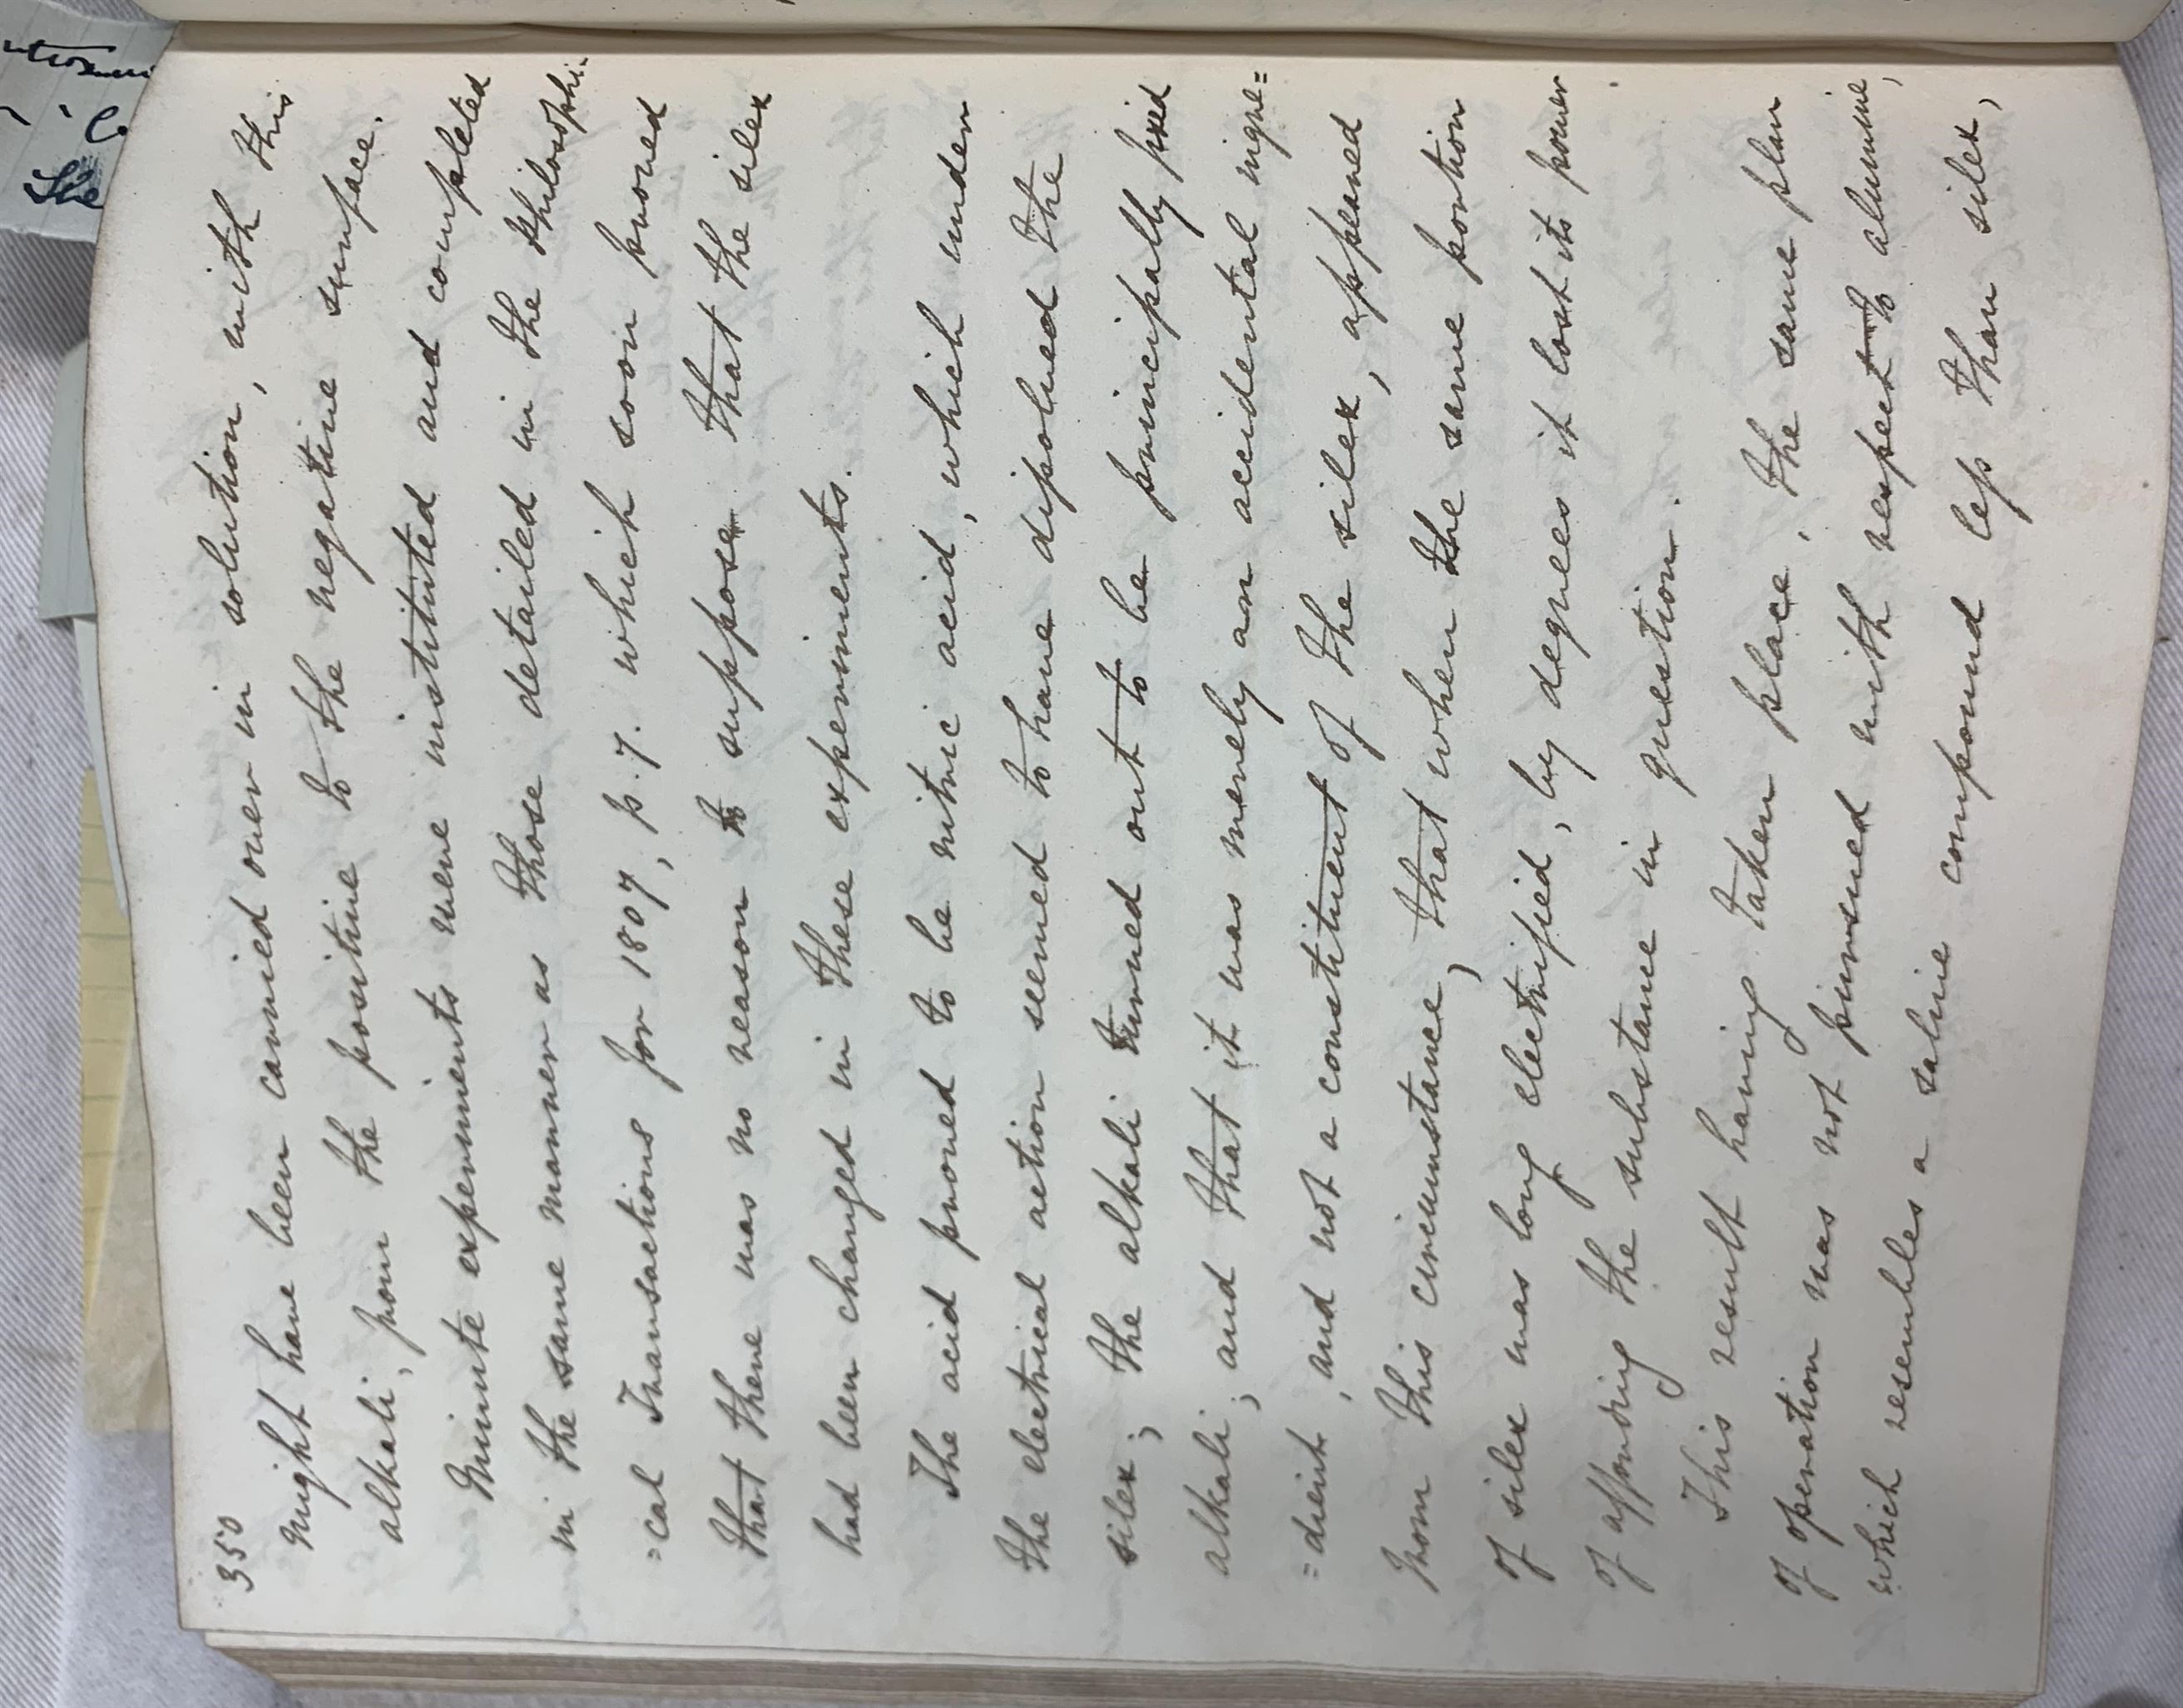 350
might have been carried over in solution, with this
alkali, from the positive to the negative surface.
Minute experiments were instituted and completed
in the same manner as those detailed in the Philosophi-
=cal Transactions for 1807, p.7. which soon proved
that there was no reason to suppose that the silex
had been changed in these experiments.
The acid proved to be nitric acid, which under
the electrical action seemed to have dissolved the
silex; the alkali turned out to be principally fixed
alkali; and that it was merely an accidental ingre=
=dient, and not a constituent of the silex, appeared
from this circumstance, that when the same portion
of silex was long electrified, by degrees it lost its power
of affording the substance in question.
This result having taken place, the same plan
of operation was not pursued with respect to alumine,
which resembles a saline compound less than silex,
the